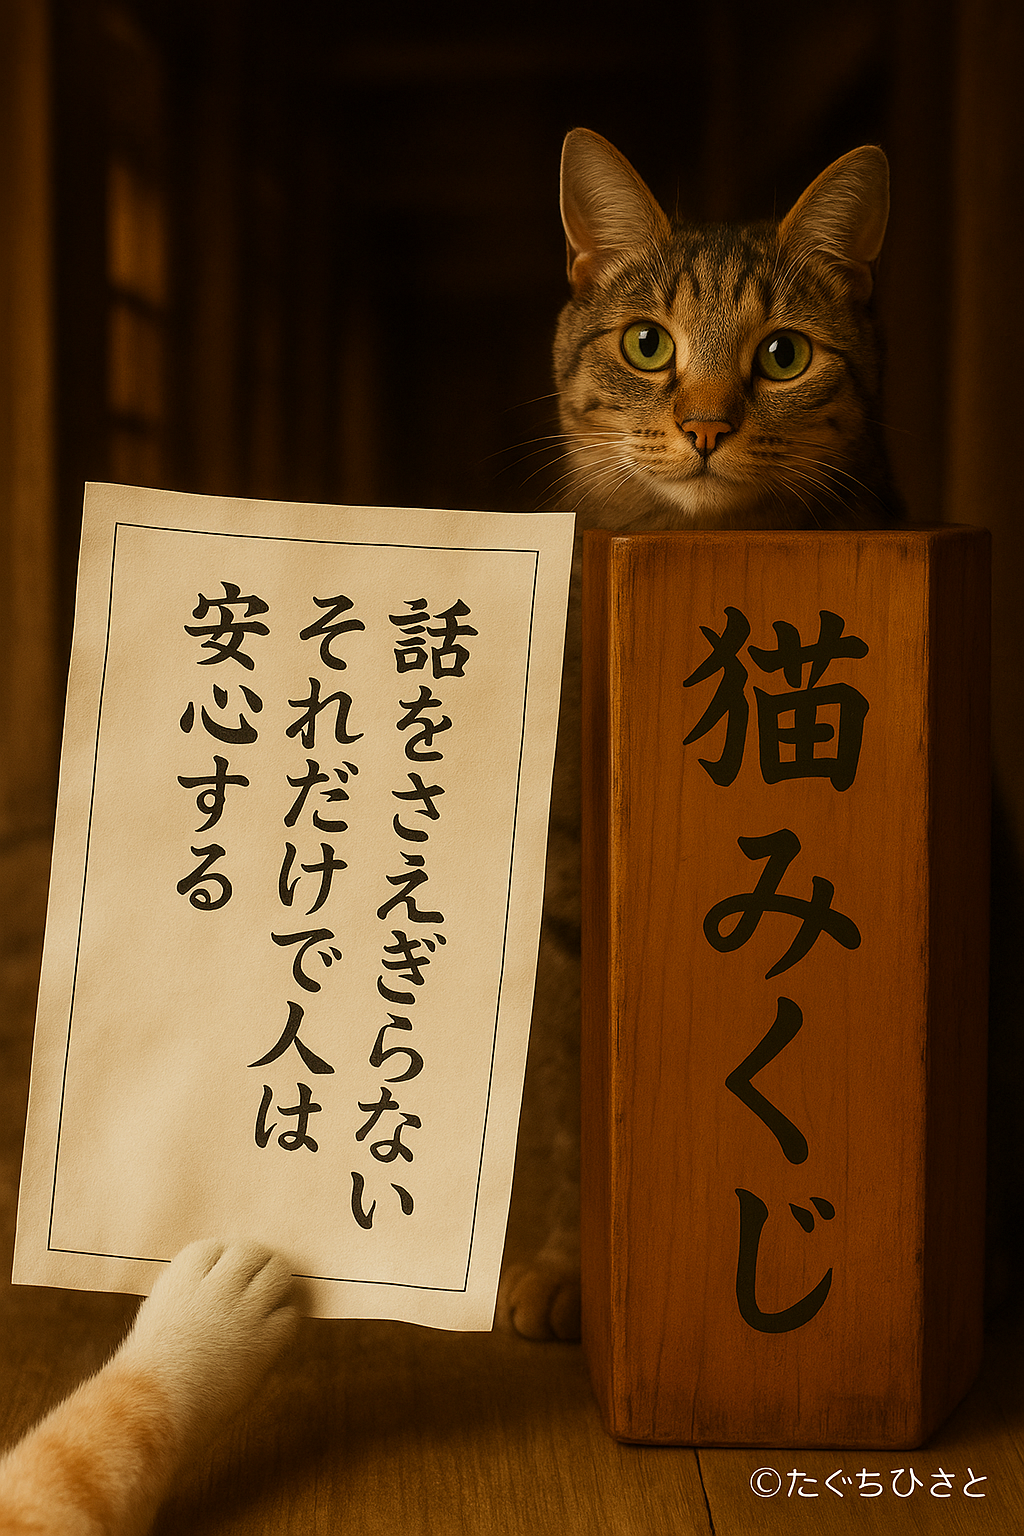 話をさえぎらない
それだけで人は
安心する
猫みくじ
©たぐちひさと